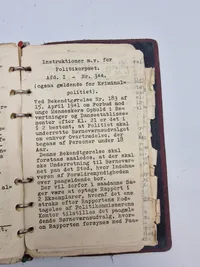 Instruktioner m.v. for
Politikorpset.
Afd. I - Nr. 344.
(ogsaa gældende for Kriminal-
politiet).
Ved Bekendtgørelse Nr. 183 af
15. April 1941 om Forbud mod
unge Menneskers Ophold i Be-
værtninger og Danseetablisse-
menter efter Kl. 21 er det i
§ 2 bestemt, at Politiet skal
underrette Børneværnsudvalget
om enhver Overtrædelse, der
begaas af Personer under 18
Aar.
Denne Bekendtgørelse skal
forstaas saaledes, at der skal
ske Underretning til Børneværn-
net paa det Sted, hvor Indehave-
ren af Forældremyndigheden
over paagældende bor.
Der vil derfor i saadanne Sa-
ger være at optage Rapport i
2 Eksemplarer, hvoraf det ene
straks efter Rapportens Mod-
tagelse af Politikommissærens
Kontor tilstilles det paagæl-
dende Børneværnsudvalg, hvor-
om Rapporten forsynes med Paa-